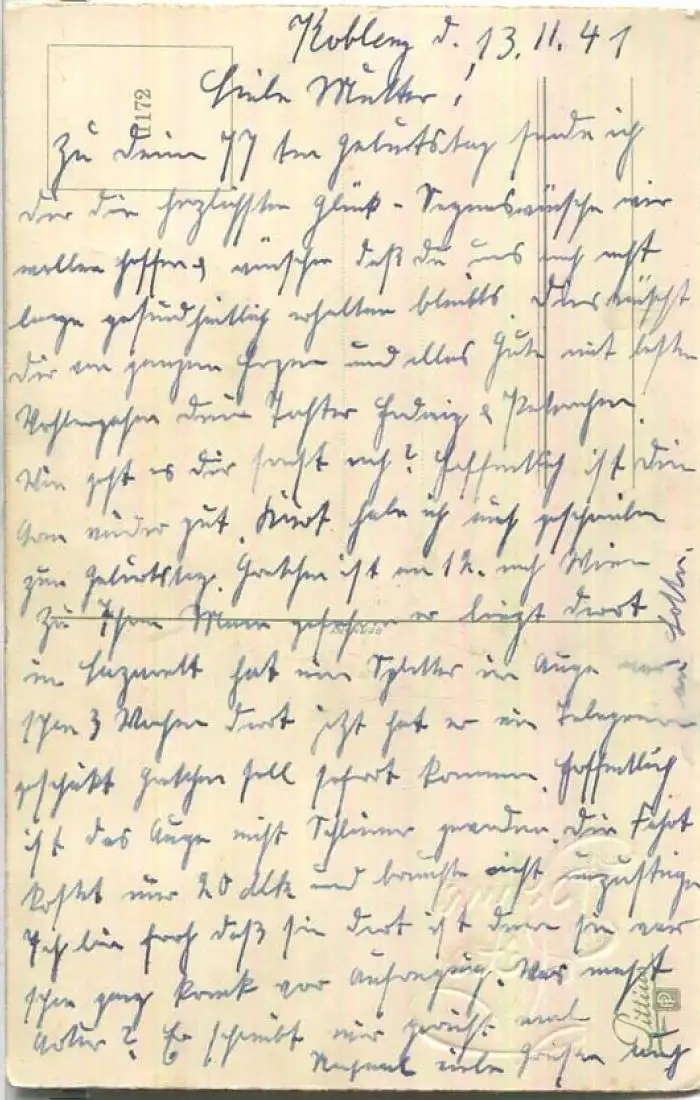 Koblenz d. 13.11.41
Liebe Mutter!
Zu Deinem 77 ten Geburtstag sende ich
Dir die herzlichsten Glück- Segenswünsche wir
wollen hoffen & wünschen daß Du uns noch recht
lange gesundheitlich erhalten bleibst. Dies wünscht
Dir von ganzem Herzen und alles Gute mit besten
Wohlergehen Deine Tochter Hedwig &
Wie geht es Dir sonst noch? Hoffentlich ist Dein
Arm wieder gut. Kurt habe ich auch geschrieben
zum Geburtstag. Gretchen ist am 12. nach Wien
zu Ihrem Mann gefahren er liegt dort
im Lazarett hat einen Splitter im Auge war
schon 3 Wochen dort jetzt hat er ein Telegramm
geschickt Gretchen soll sofort kommen. Hoffentlich
ist das Auge nicht Schlimmer geworden. Die Fahrt
kostet nur 20 Mk und brauchte nicht umzusteigen
Ich bin froh daß sie dort ist denn sie war
schon ganz krank vor Aufregung. Was macht
Artur? Er schreibt mir garnicht mal
Nochmal viele Grüße auch
an
U172